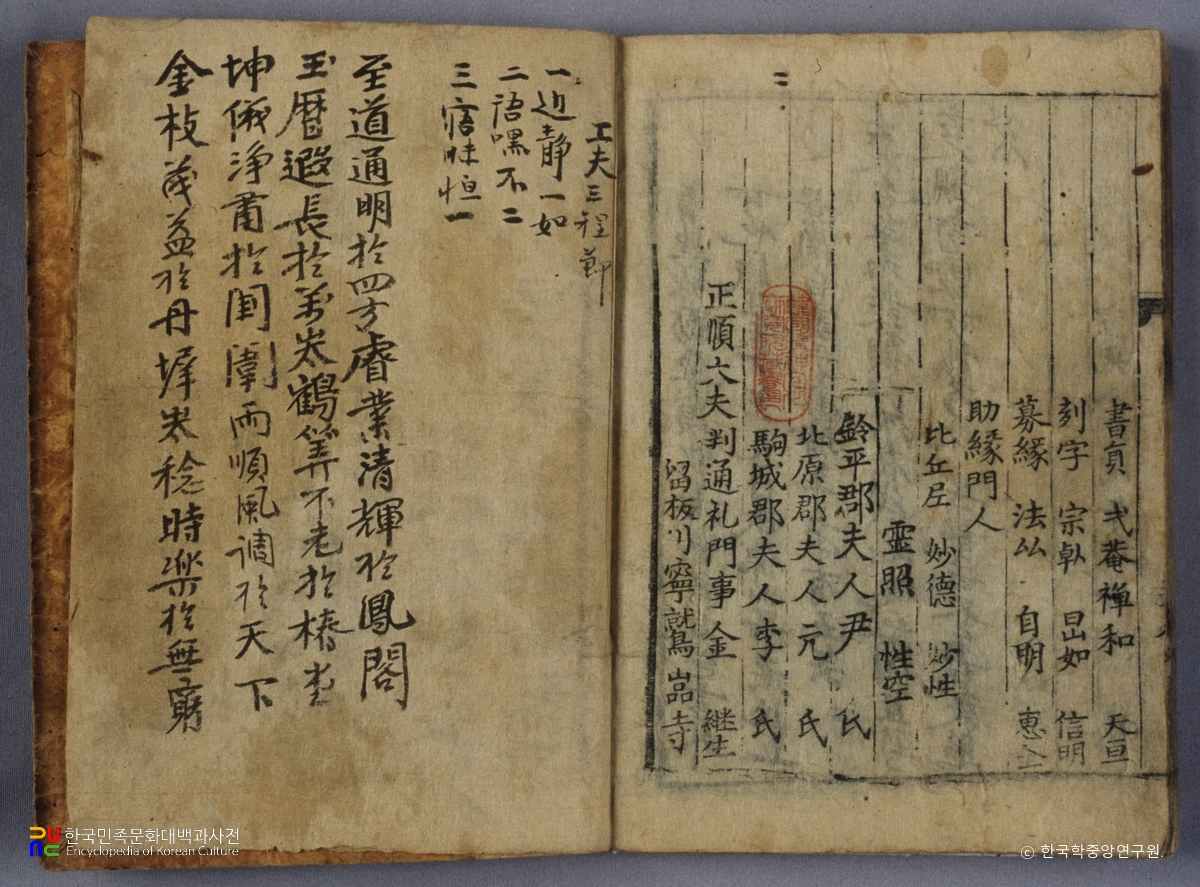 書員 弐菴禅和 天亘
刻字 宗卓 旵如 信明
募縁 法厸 自明 惠全
助縁門人
比丘尼 妙德 妙性
霊照 性空
鈴平郡夫人尹 氏
北原郡夫人元 氏
駒城郡夫人李 氏
正順大夫判通礼門事金 継生
留板川寧鷲嵒寺
工夫三程節
一 近静一如
二 語嘿不二
三 寤昧恒一
至道通明於四方睿業清輝於鳳閣
玉暦遐長於万岁鶴筭不老於椿
坤儀浄肅於閨闈雨順風調於天下
金枝茂益於丹墀岁稔時楽於無窮
한국민족문화대백과사전
Encyclopedia of Korean Culture
ⓒ 한국학중앙연구원.